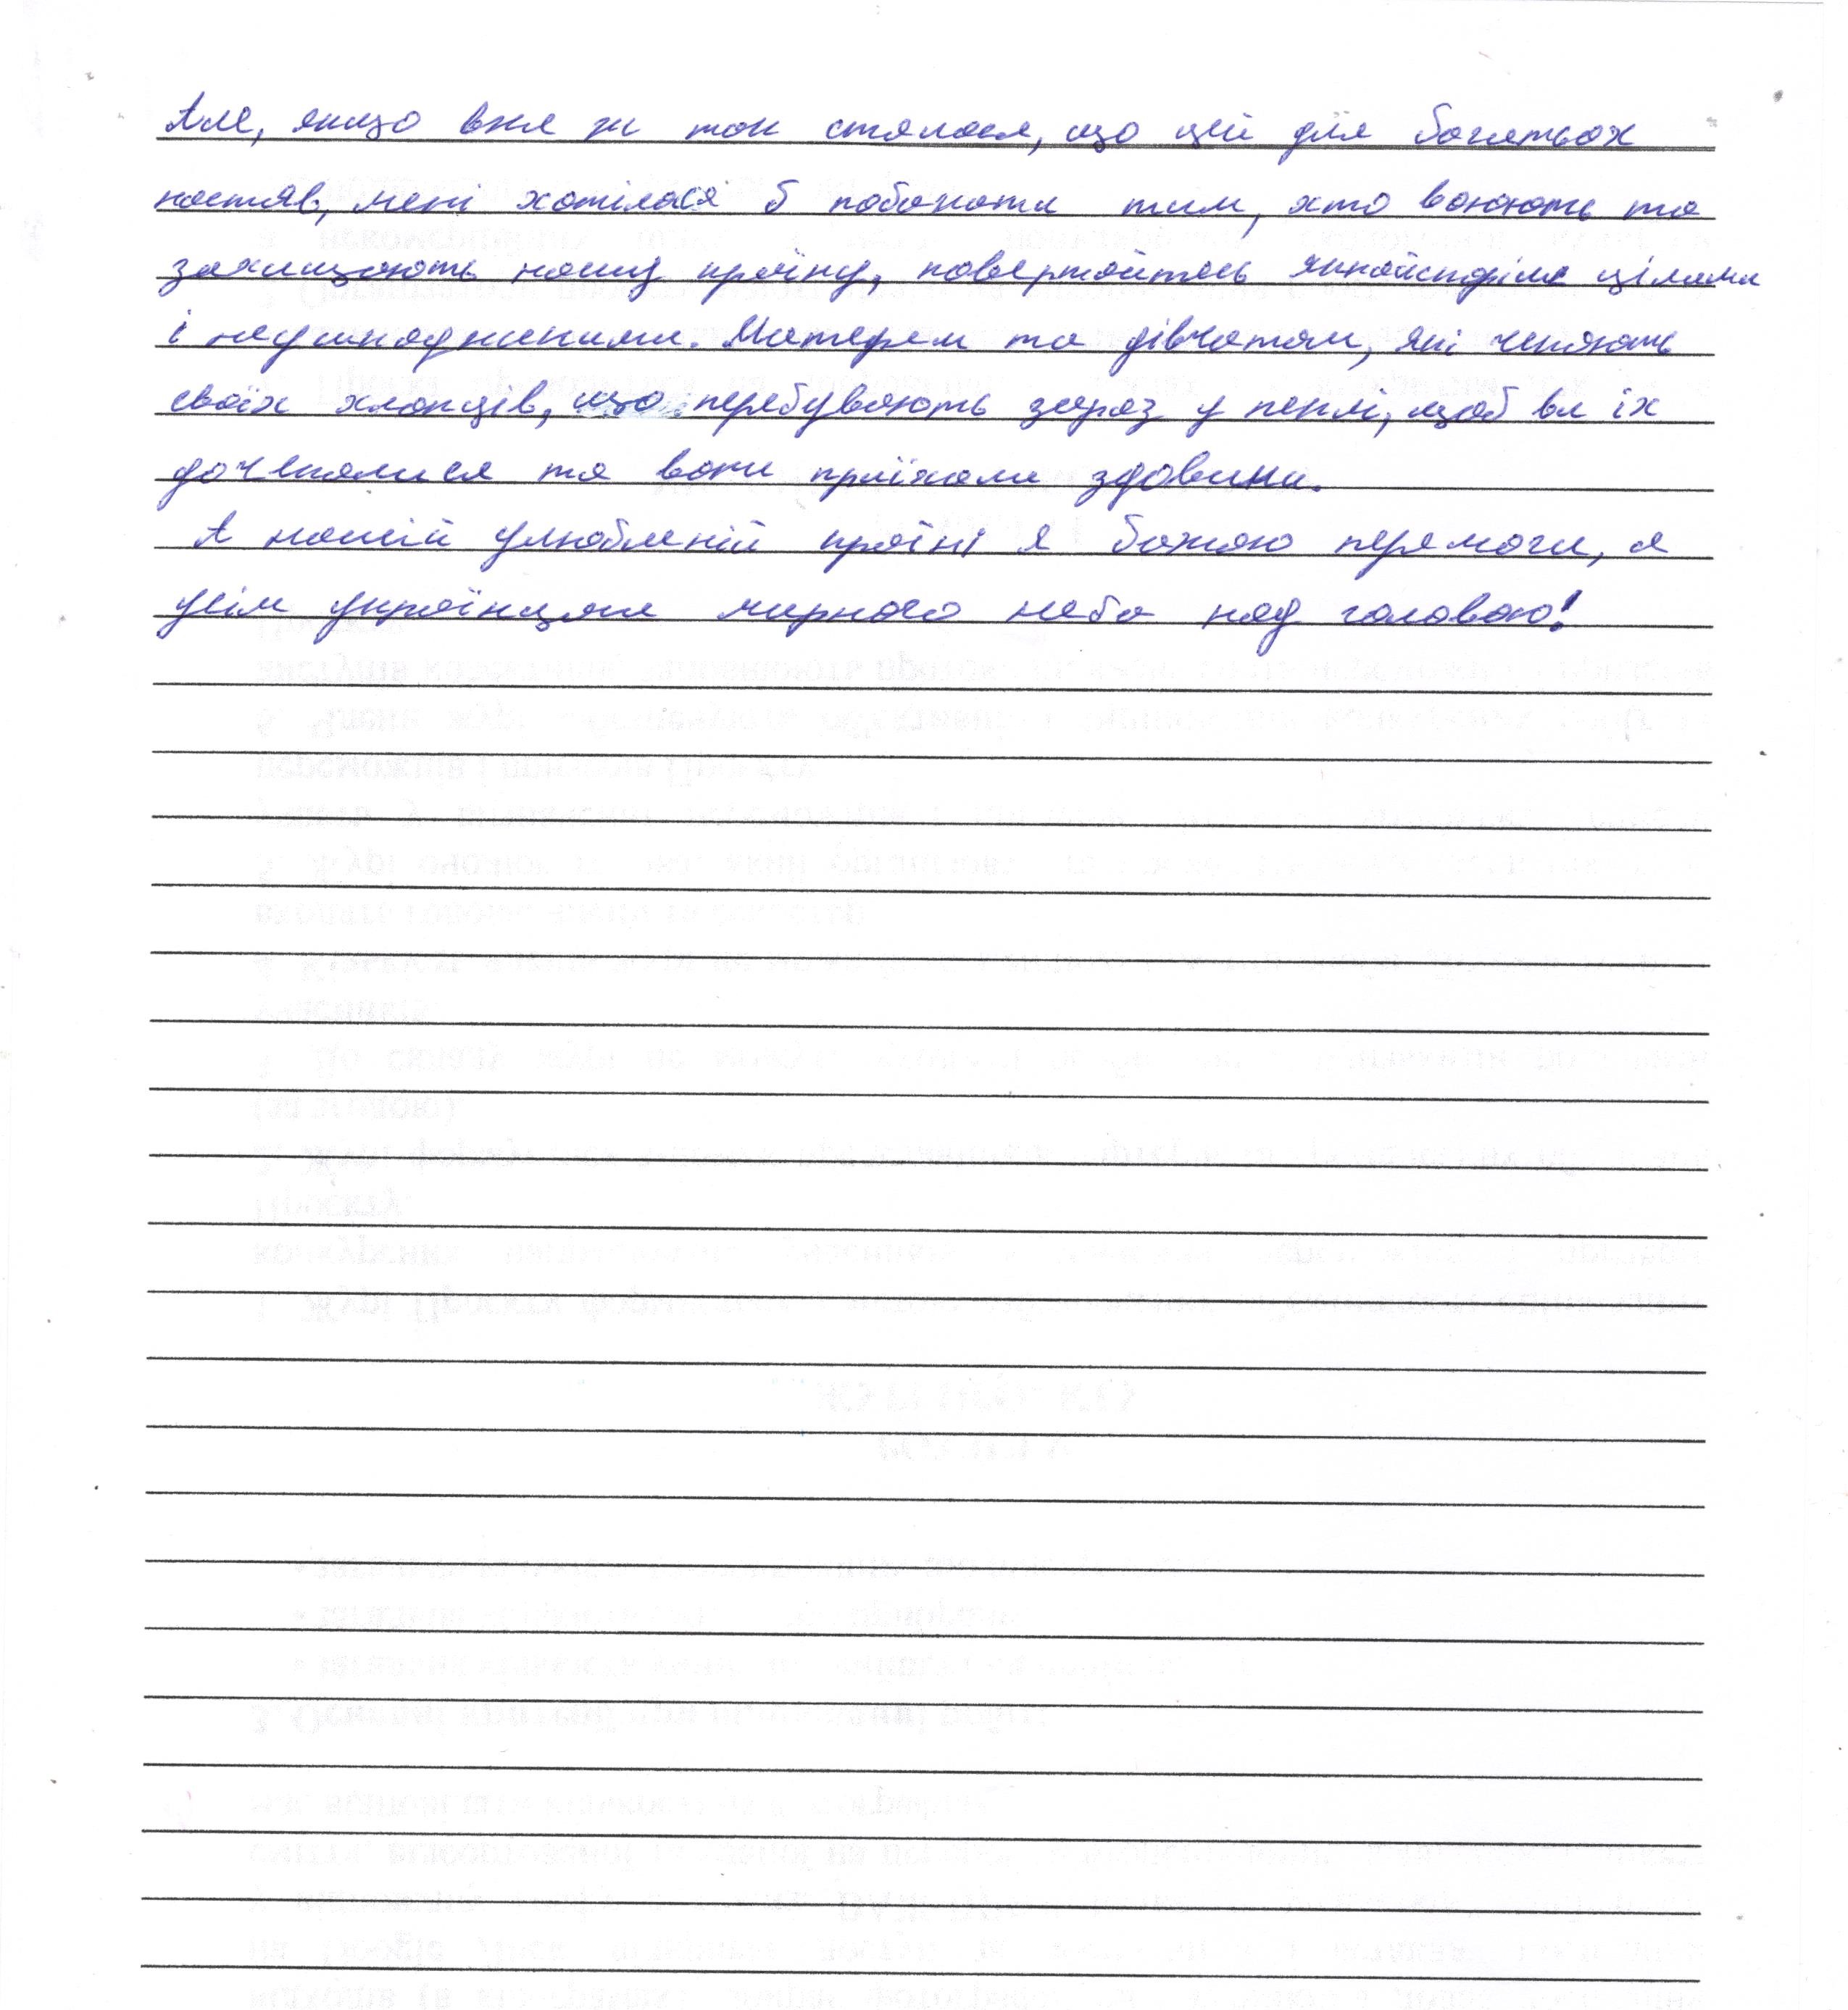 Але, якщо вже ж так сталося, що цей для багатьох
настав, мені хотілося б побажати тим, хто воюють та
захищають нашу країну, повертайтесь якнайскоріше цілими
і неушкодженими. Матерям та дівчатам, які чекають
своїх хлопців, що перебувають зараз у пеклі, щоб ви їх
дочекалися та вони приїхали здовими.
А нашій улюбленій країні я бажаю перемоги, а
усім українцям мирного неба над головою!